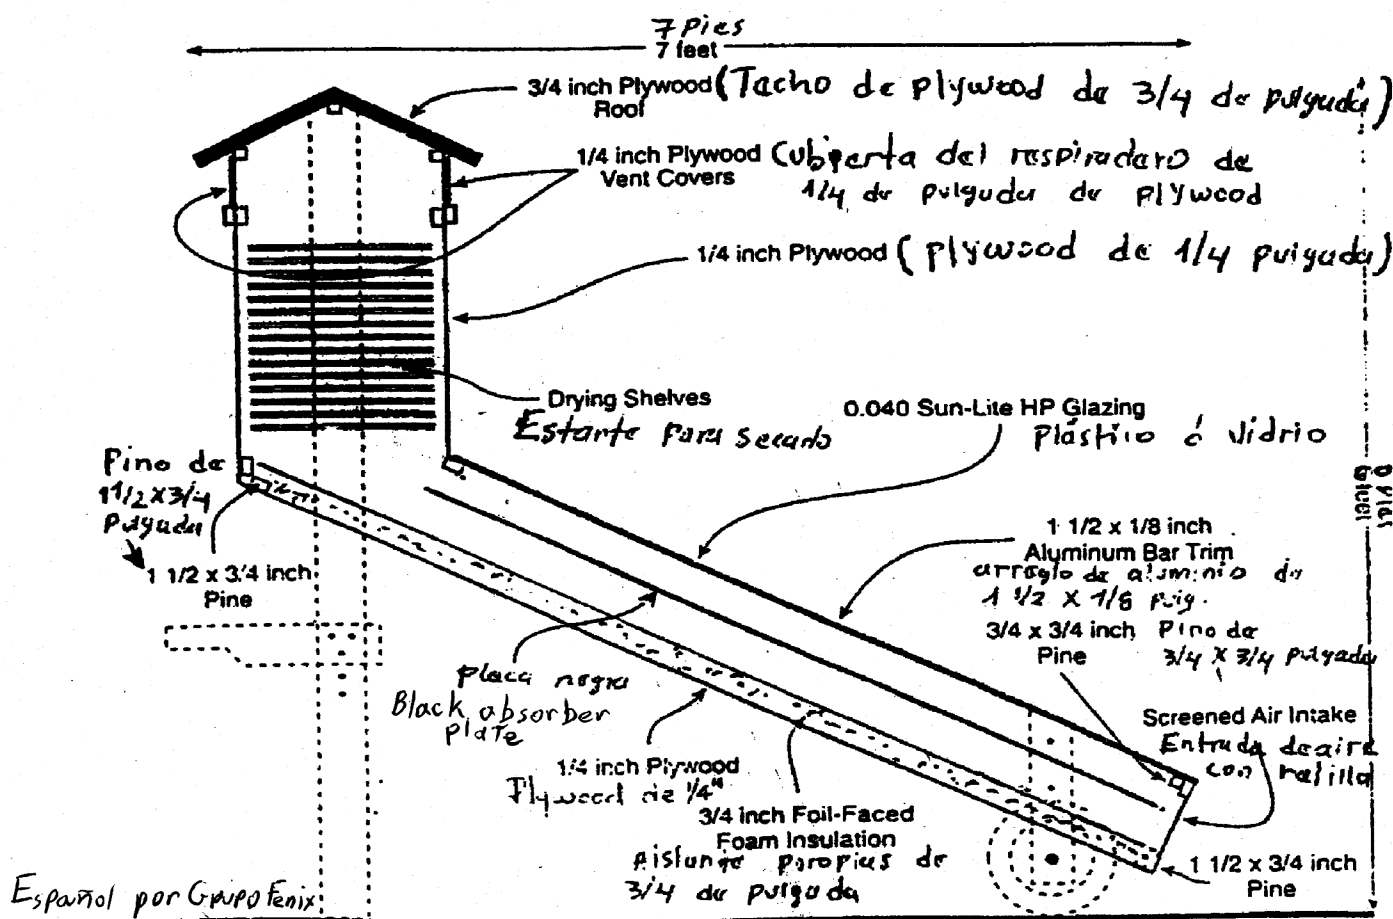 7 Pies
7 feet
3/4 inch Plywood (Tacho de plywood de 3/4 de pulgada)
Roof
1/4 inch Plywood Cubierta del respiradero de
Vent Covers 1/4 de pulgada de plywood
1/4 inch Plywood (plywood de 1/4 pulgada)
Drying Shelves
Estante para secado
0.040 Sun-Lite HP Glazing
Plástico ó vidrio
Pino de
1 1/2 x 3/4
Pulgada
1 1/2 x 3/4 inch
Pine
1 1/2 x 1/8 inch
Aluminum Bar Trim
arreglo de aluminio de
1 1/2 x 1/8 pulg.
3/4 x 3/4 inch Pino de
Pine 3/4 x 3/4 pulgada
placa negra
Black absorber
plate
Screened Air Intake
Entrada de aire
con rejilla
1/4 inch Plywood
Plywood de 1/4"
3/4 inch Foil-Faced
Foam Insulation
Aislante
3/4 de pulgada
1 1/2 x 3/4 inch
Pine
Español por Grupo Fenix